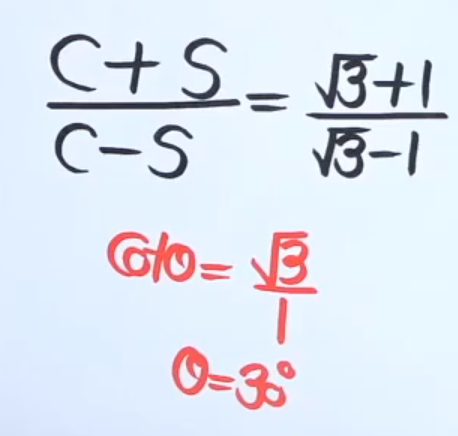 C+S/C-S = √3+1/√3-1
Cotθ = √3/1
θ=30°